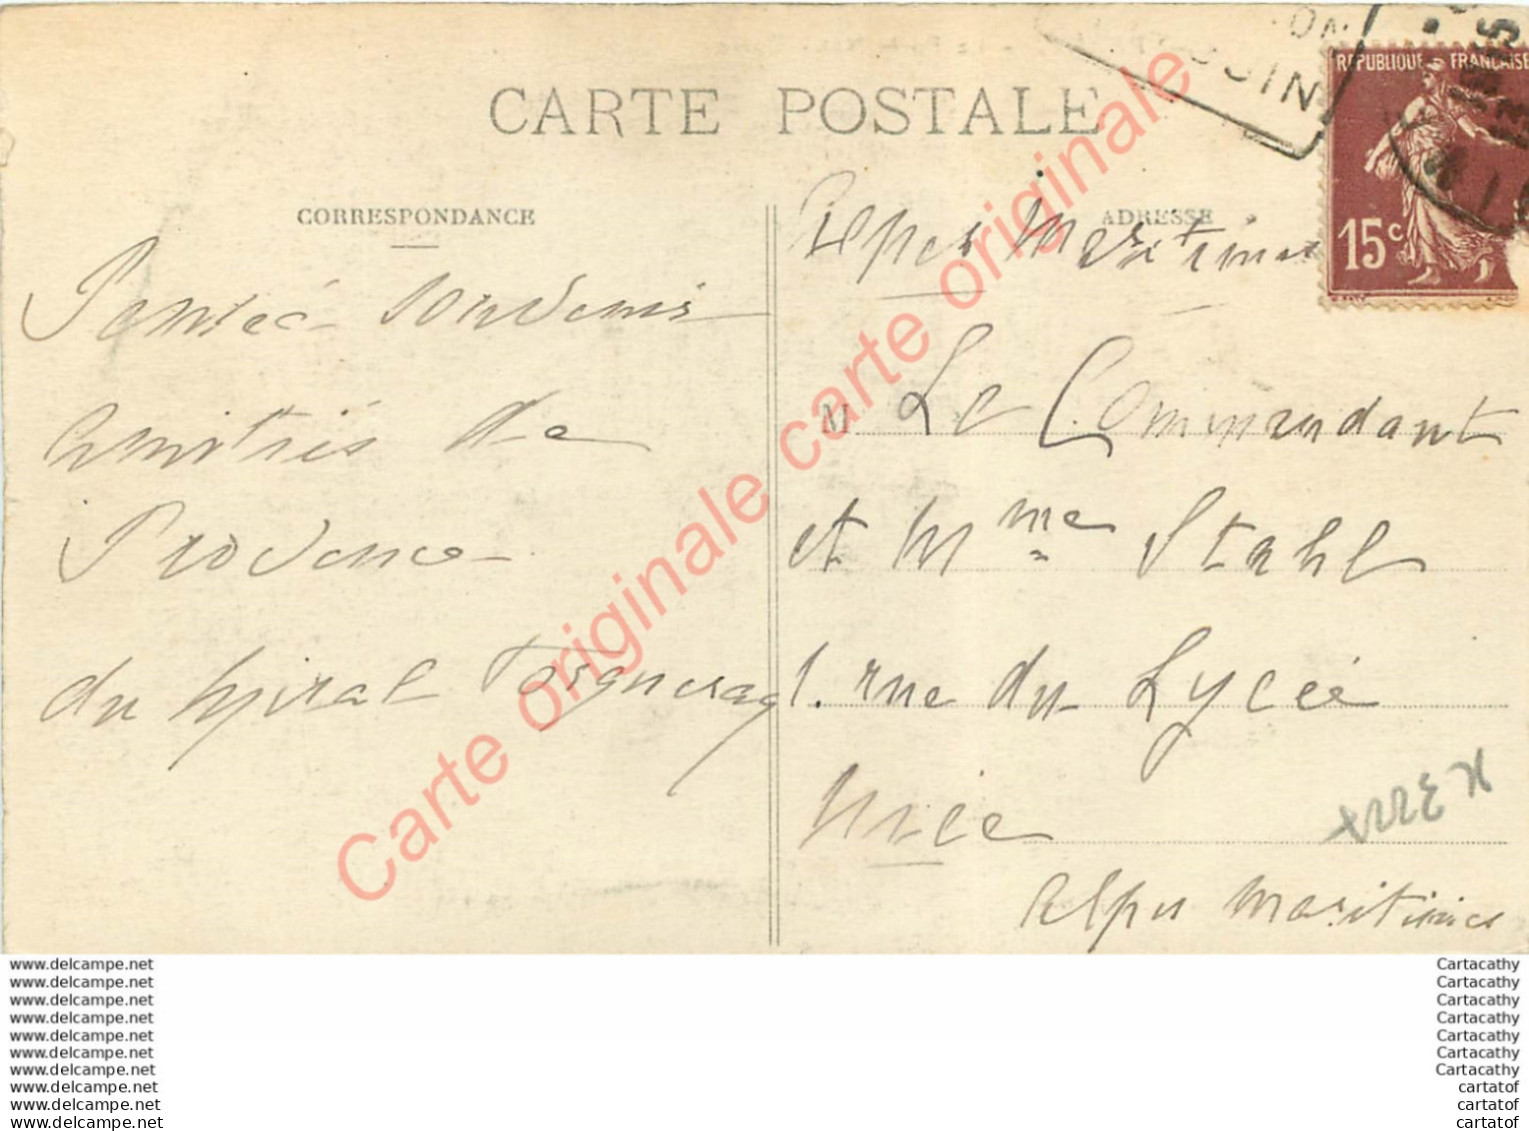 CARTE POSTALE
CORRESPONDANCE
Pensée souvenir
amitiés de
Provence
du
ADRESSE
Alpes Maritimes
M Le Commandant
et Mme Stahl
1. rue du Lycée
Nice
Alpes Maritimes
REPUBLIQUE FRANÇAISE
15c
Carte originale carte originale carte originale
www.delcampe.net
www.delcampe.net
www.delcampe.net
www.delcampe.net
www.delcampe.net
www.delcampe.net
www.delcampe.net
www.delcampe.net
www.delcampe.net
www.delcampe.net
Cartacathy
Cartacathy
Cartacathy
Cartacathy
Cartacathy
Cartacathy
Cartacathy
cartatof
cartatof
cartatof